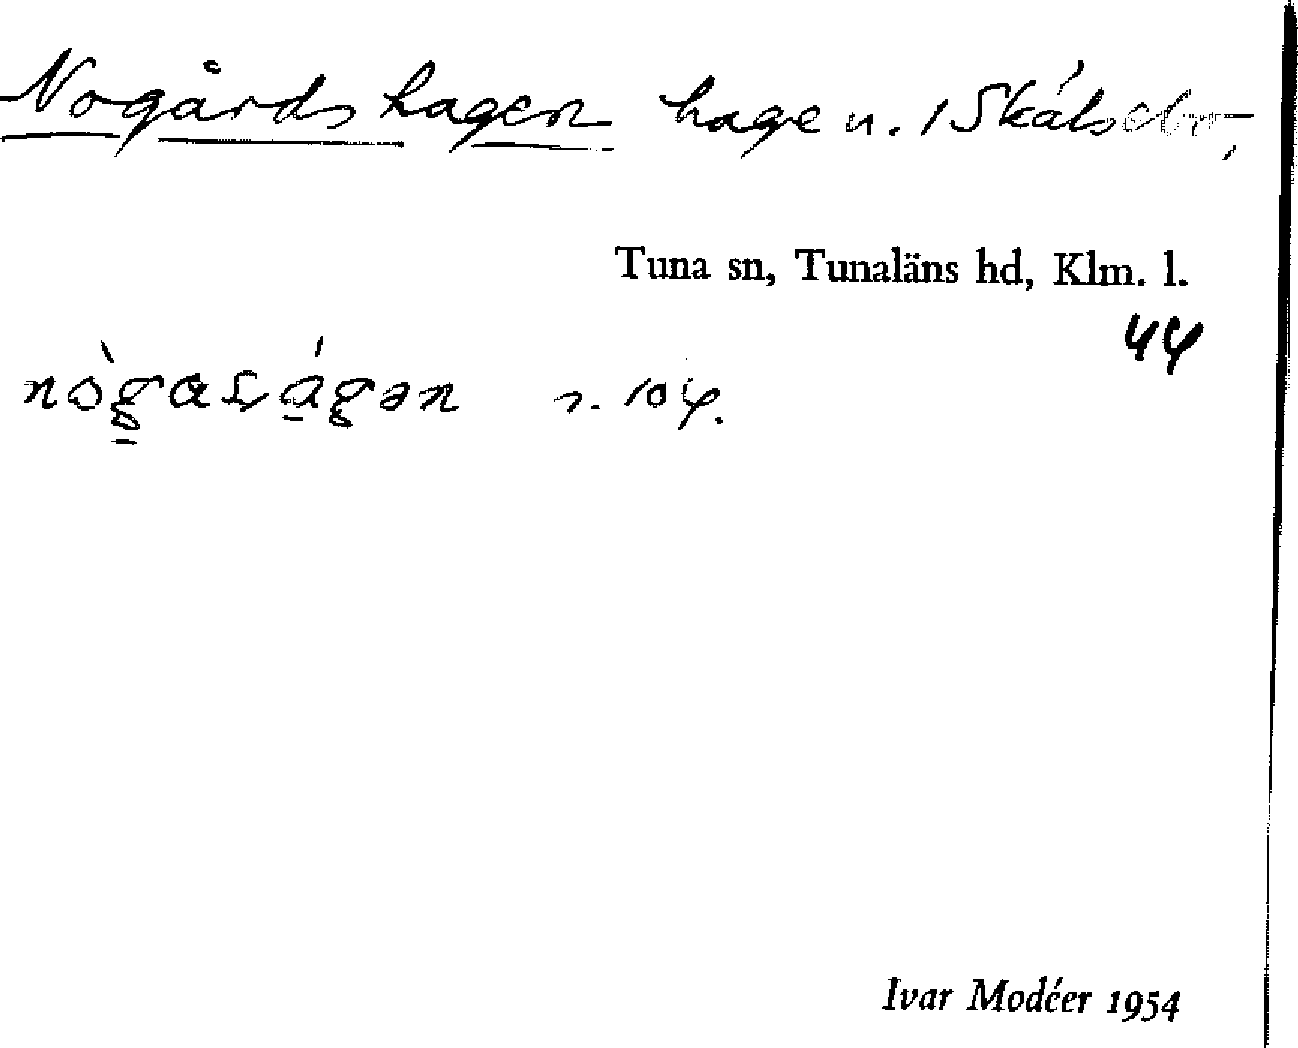 Nogårdshagen hage n. 1
Tuna sn, Tunaläns hd, Klm. l.
44
r. 104.
Ivar Modéer 1954